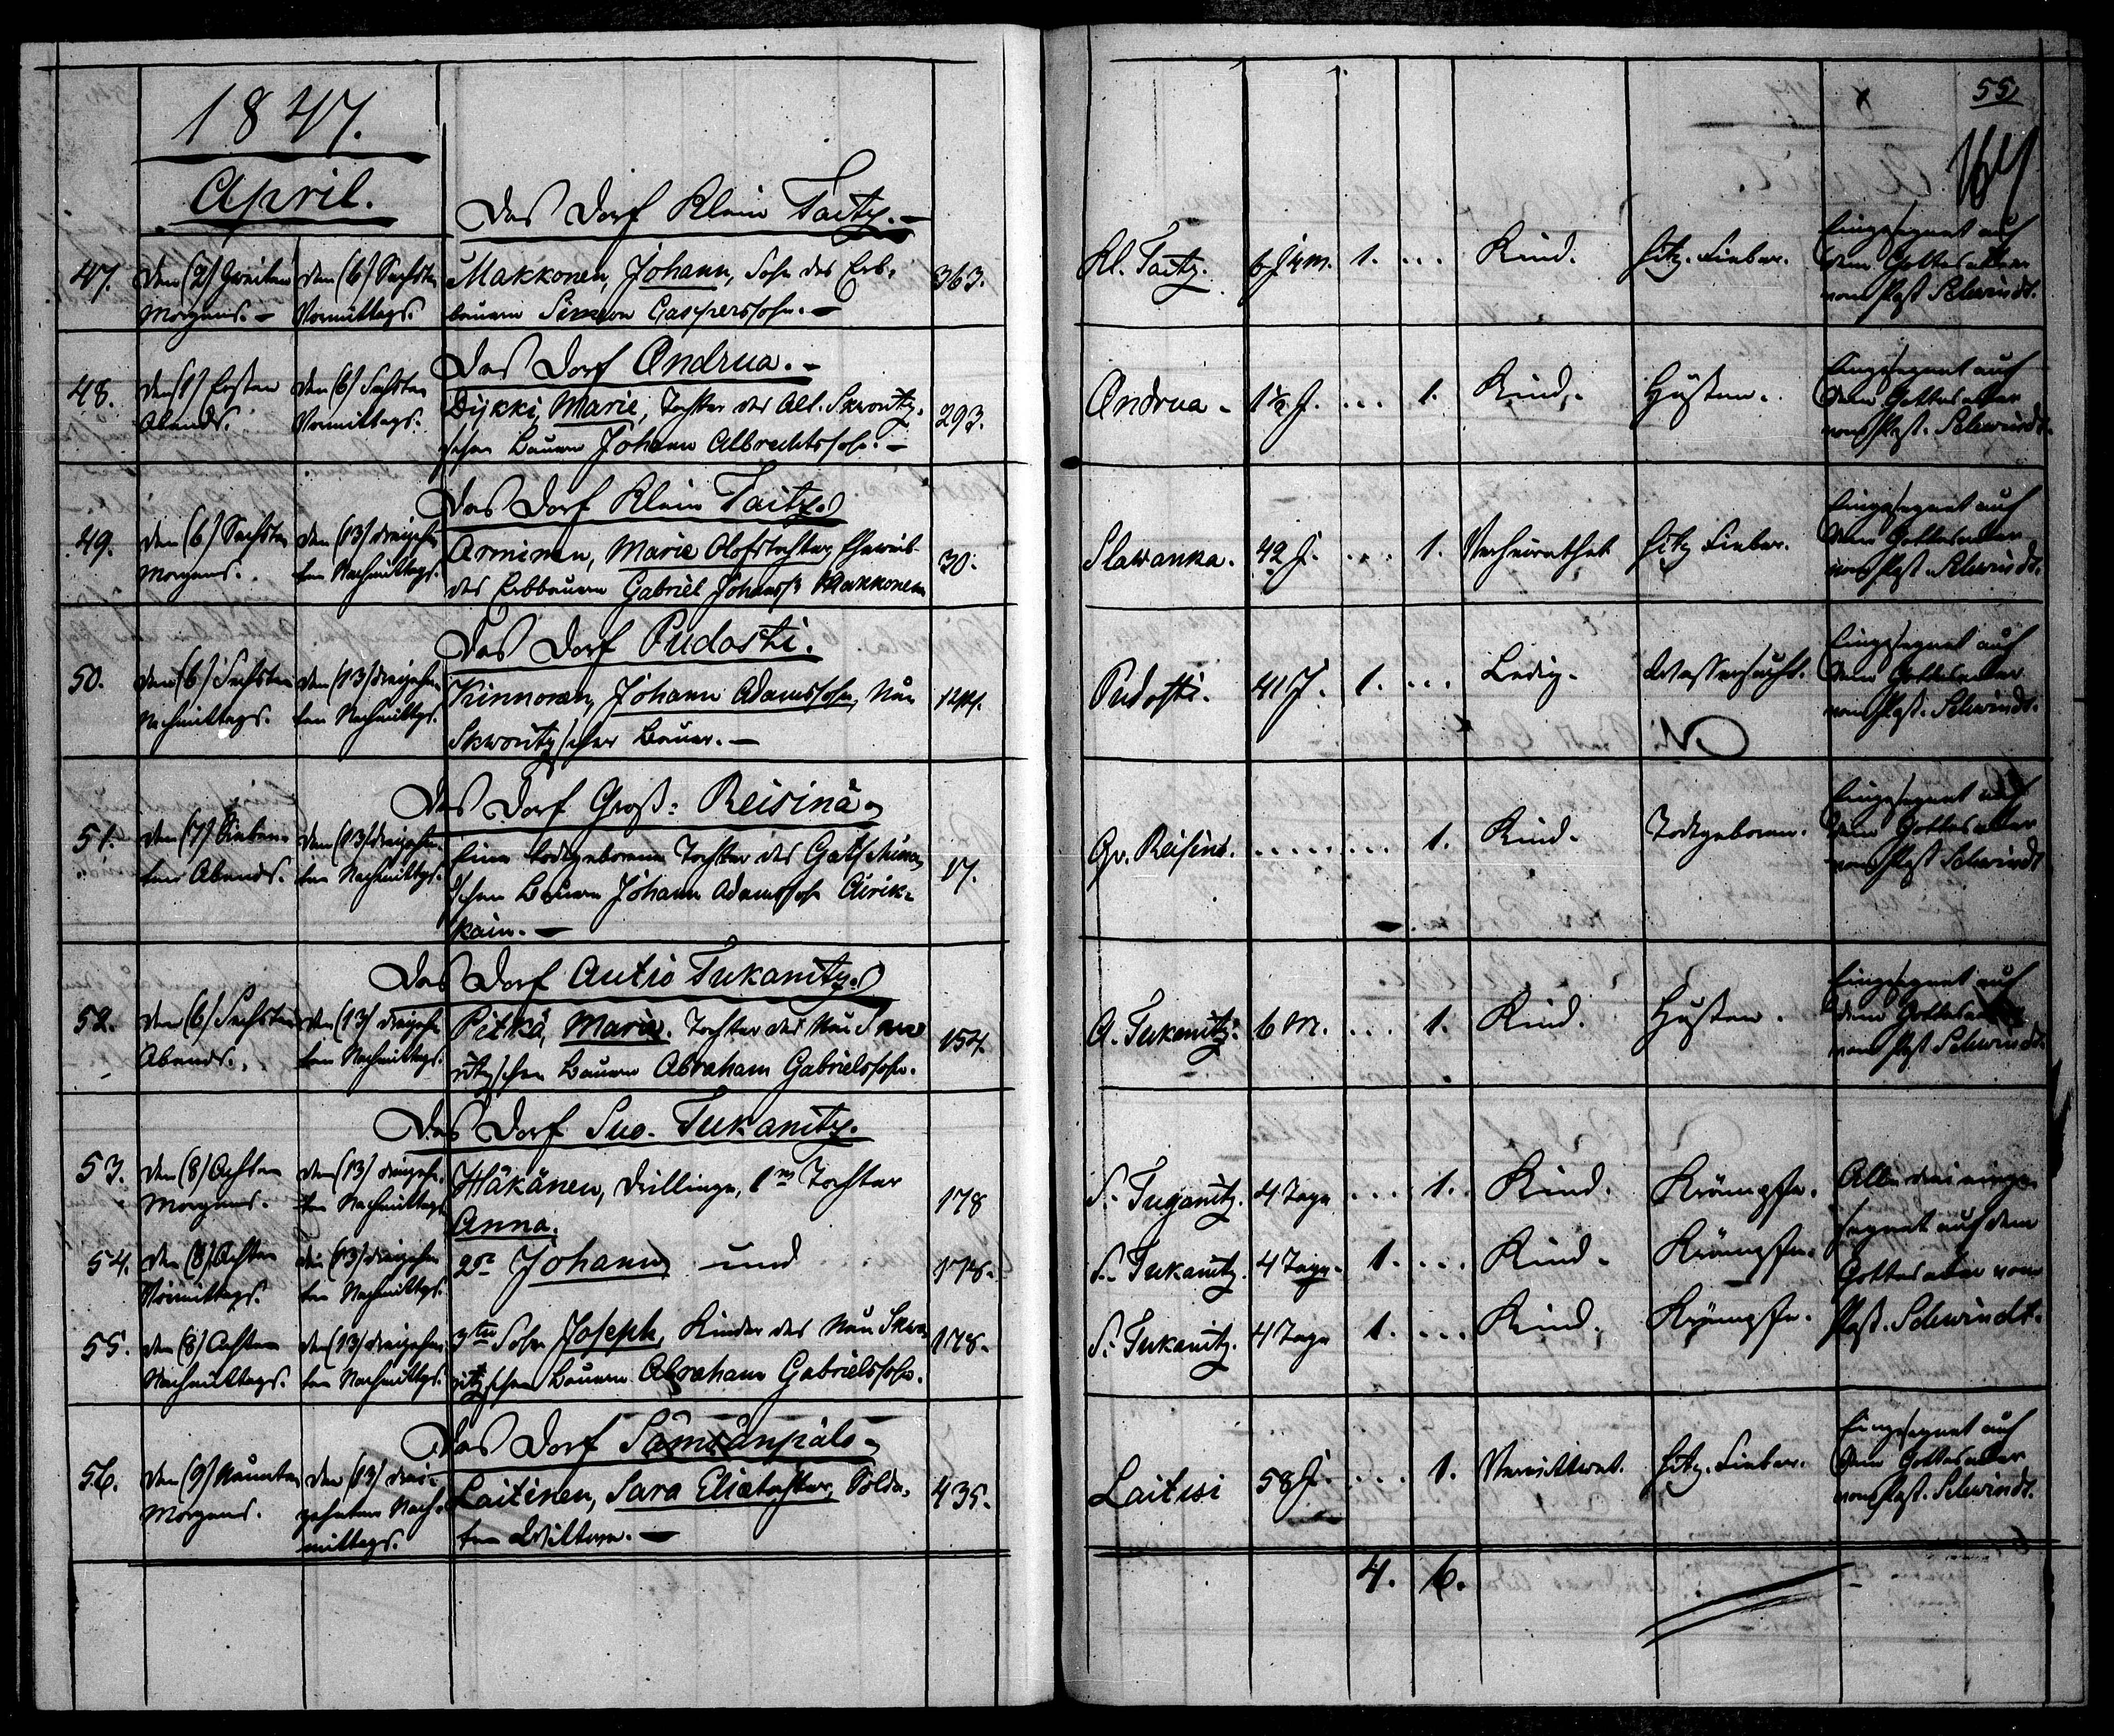 1847.
April.
Das Dorf Klein Taitz.
47. den (2) Zweiten den (6) Sechsten Makkonen, Johann, Sohn des Erb- 363.
Morgens. Vormittags. bauern Simon Casperssohn.
Das Dorf Ondrua.
48. den (1) Ersten den (6) Sechsten Dykki, Marie, Tochter des Alt. Skworitz- 293.
Abends. Vormittags. schen Bauern Johann Albrechtssohn.
Das Dorf Klein Taitz.
49. den (6) Sechsten den (13) dreizehn- Arminen, Marie Olofstochter, Eheweib 30.
Morgens. ten Nachmittags. des Erbbauern Gabriel Johanss. Makkonen
Das Dorf Pudosti.
50. den (6) Sechsten den (13) dreizehn- Kinnonen, Johann Adamssohn, Neu
Nachmittags. ten Nachmittgs. Skworitzscher Bauer.
Das Dorf Groß-Reisinä
51. den (7) Sieben- den (13) dreizehn- Eine todtgeborene Tochter des Gatschina- 17.
ten Abends. ten Nachmittgs. schen Bauern Johann Adamssohn Airik-
kain.
Das Dorf Autio Tukanitz.
52. den (6) Sechsten den (13) dreizehn- Pitkä, Maria. Tochter des Neu Skwo 154.
Abends. ten Nachmittags. ritzschen Bauern Abraham Gabrielssohn.
Das Dorf Suo-Tukanitz.
53. den (8) Achten den (13) dreizehn- Häkänen, Drillinge, 1ns Tochter 178
Morgens. ten Nachmittags Anna.
54. den (8) Achten den (13) dreizehn- 2ns Johann und 178.
Vormittags. ten Nachmittgs.
55. den (8) Achten den (13) dreizehn- 3tens Sohn Joseph, Kinder des Neu Skwo 178.
Nachmittags. ten Nachmittgs. ritzschen Bauern Abraham Gabrielssohn.
Das Dorf
56. den (9) Neunten den (13) drei- Laitinen, Sara Eliætochter, Solda- 435.
Morgens. zehnten Nach- ten Wittwe.
mittags.
55
164
Kl. Taitz. 6 J 4 m. 1. ... Kind. hitz. Fieber. Eingesegnet auf
dem Gottesacker
vom Past Schwindt.
Ondrua. 1½ J. ... 1. Kind. Husten. Eingesegnet auf
dem Gottesacker
vom Past. Schwindt.
Slawanka. 42 J. ... 1. Verheirathet hitz Fieber. Eingesegnet auf
dem Gottesacker
vom Past. Schwindt.
Pudosti. 41 J. 1. ... Ledig. Wassersucht. Eingesegnet auf
dem Gottesacker
vom Past. Schwindt.
Gr. Reisinä. ... ... 1. Kind. Todtgeboren. Eingesegnet auf
dem Gottesacker
vom Past Schwindt
A. Tukanitz. 6 M. ... 1. Kind. Husten. Eingesegnet auf
dem Gottesacker
vom Past Schwindt.
S. Tuganitz. 4 Tage ... 1. Kind. Krämpfe. Alle drei einge-
segnet auf dem
S. Tukanitz. 4 Tage. 1. ... Kind. Krämpfe. Gottesacker vom
S. Tukanitz. 4 Tage 1. ... Kind. Krämpfe. Past. Schwindt.
Laitisi 58 J. ... 1. Verwittwet. hitz. Fieber. Eingesegnet auf
dem Gottesacker
vom Past. Schwindt.
4. 6.